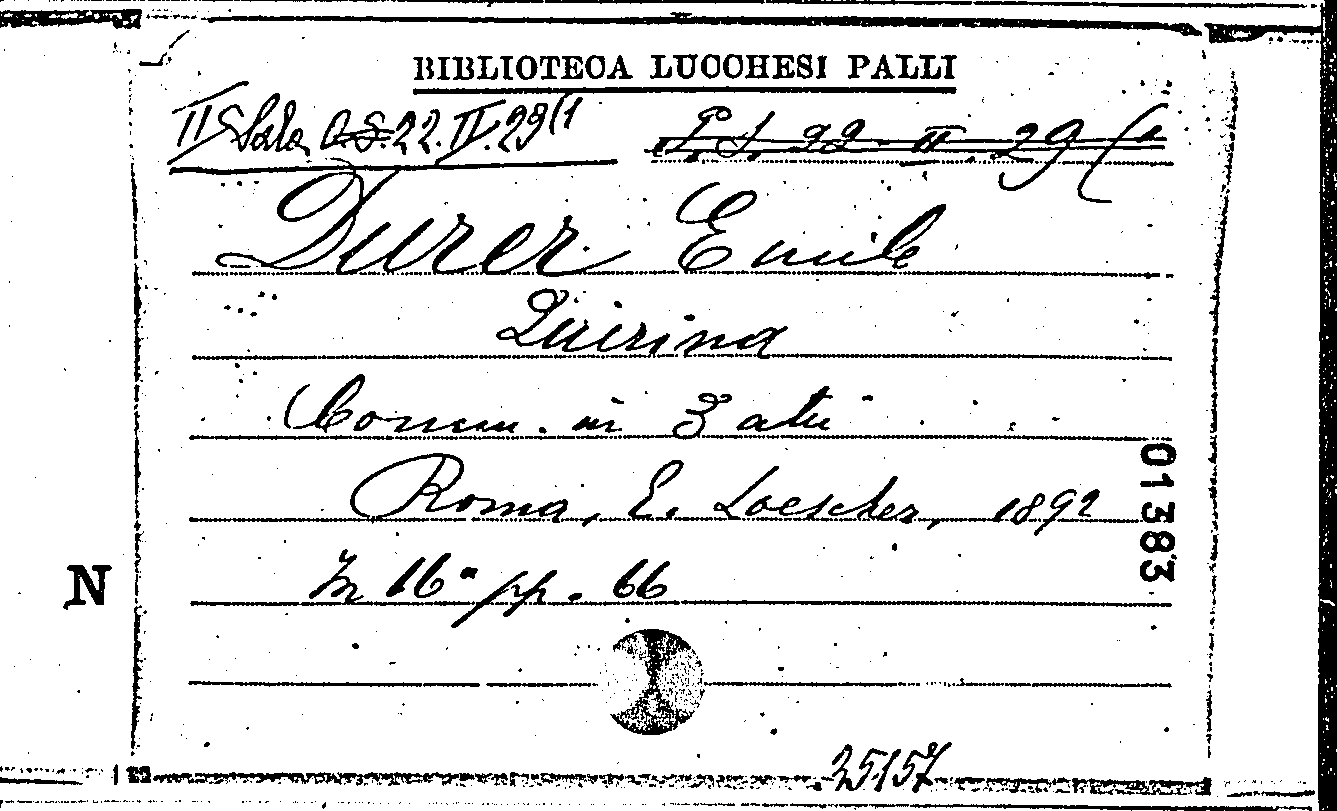 BIBLIOTECA LUCCHESI PALLI
II Sala C.S. 22. IV. 29(1
P.S. 22 II. 29(1
Durer Emile
Quirina
Comm. in 3 atti
Roma, E. Loescher, 1892
In 16° pp. 66
N
01383
25157